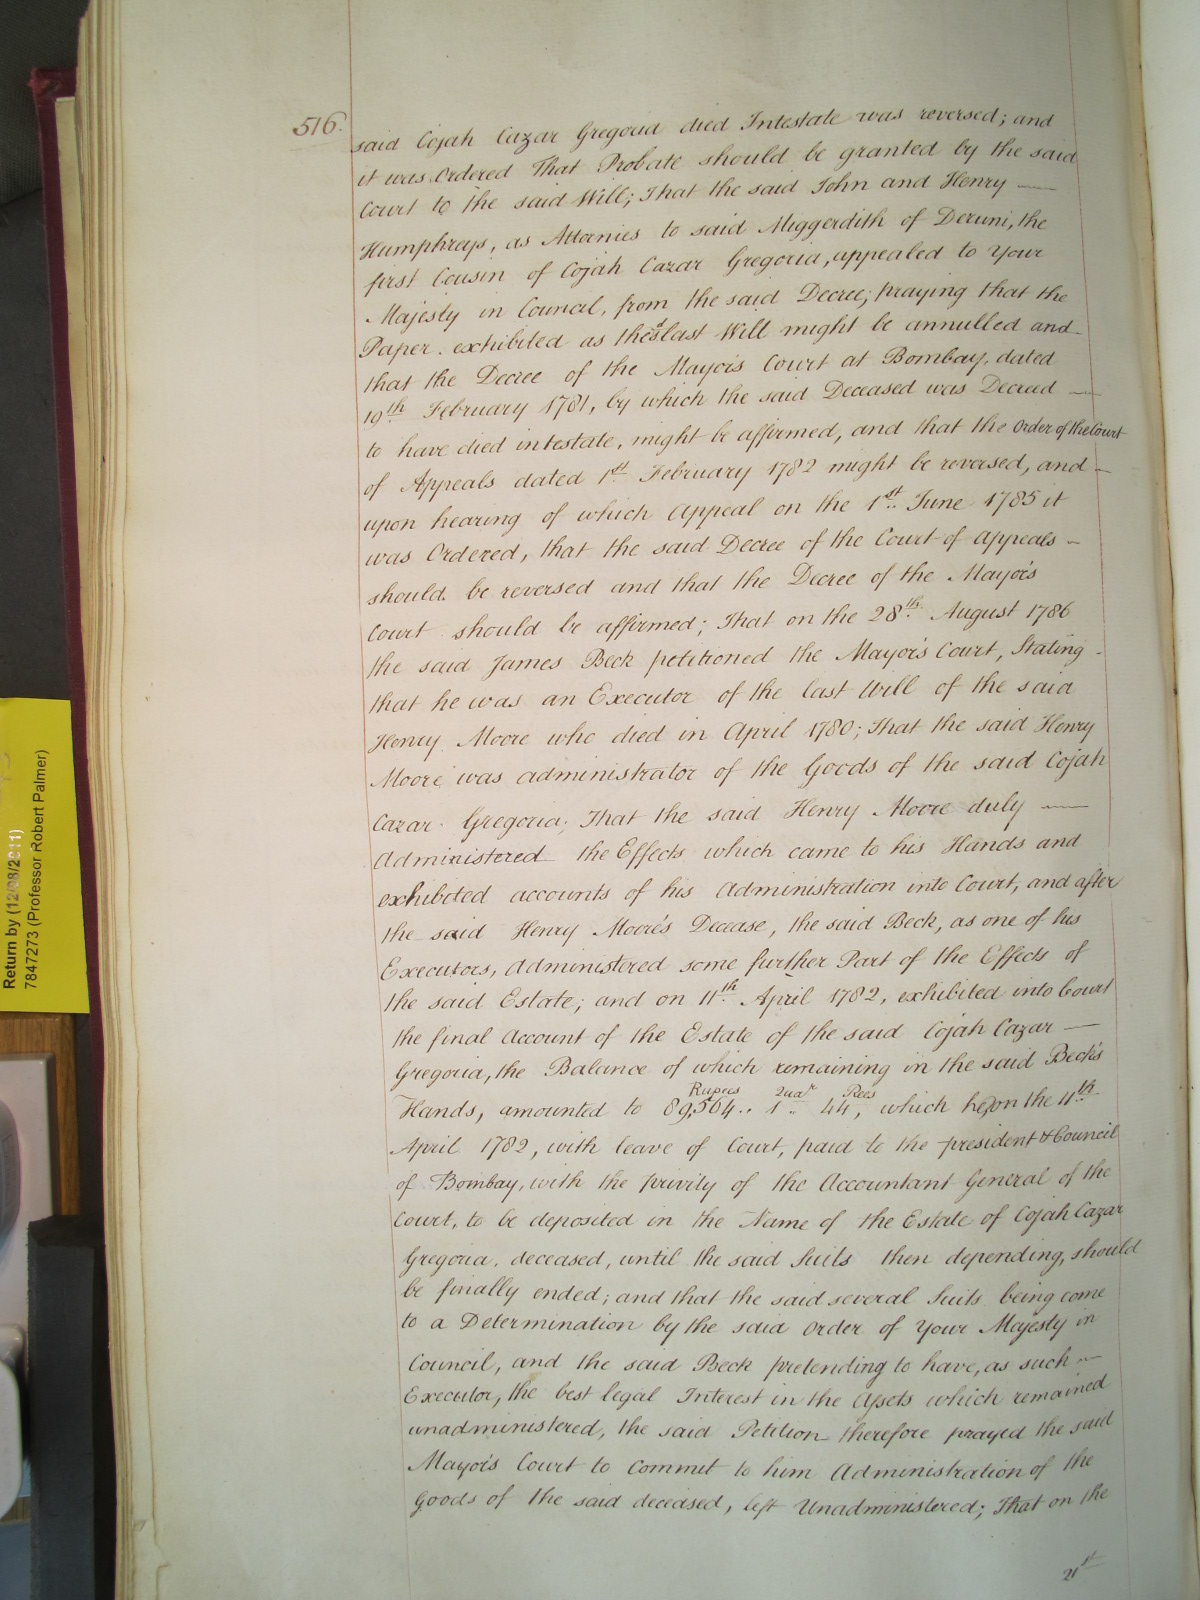 516.
said Cojah Cazar Gregoria died Intestate was reversed; and
it was Ordered That Probate should be granted by the said
Court to the said Will; That the said John and Henry —
Humphreys, as Attornies to said Miggerdith of Deruni, the
first Cousin of Cojah Cazar Gregoria, appealed to Your
Majesty in Council, from the said Decree; praying that the
Paper exhibited as the sd last Will might be annulled and
that the Decree of the Mayor's Court at Bombay, dated
19th February 1781, by which the said Deceased was Decreed —
to have died intestate, might be affirmed, and that the Order of the Court
of Appeals dated 1st February 1782 might be reversed, and —
upon hearing of which Appeal on the 1st June 1785 it
was Ordered, that the said Decree of the Court of Appeals —
should be reversed and that the Decree of the Mayor's
Court should be affirmed; That on the 28th August 1786
the said James Beck petitioned the Mayor's Court, Stating -
that he was an Executor of the last Will of the said
Henry Moore who died in April 1780; That the said Henry
Moore was administrator of the Goods of the said Cojah
Cazar Gregoria; That the said Henry Moore duly —
Administered the Effects which came to his Hands and
exhibited accounts of his Administration into Court, and after
the said Henry Moore's Decease, the said Beck, as one of his
Executors, Administered some further Part of the Effects of
the said Estate; and on 11th April 1782, exhibited into Court
the final Account of the Estate of the said Cojah Cazar —
Gregoria, the Balance of which remaining in the said Beck's
Hands, amounted to Rupees 89,564.. Quar 1.. Rees 44, which he, on the 11th
April 1782, with leave of Court, paid to the president & Council
of Bombay, with the privity of the Accountant General of the
Court, to be deposited in the Name of the Estate of Cojah Cazar
Gregoria, deceased, until the said Suits then depending, should
be finally ended; and that the said several Suits being come
to a Determination by the said Order of Your Majesty in
Council, and the said Beck pretending to have, as such —
Executor, the best legal Interest in the Assets which remained
unadministered, the said Petition therefore prayed the said
Mayor's Court to Commit to him Administration of the
Goods of the said deceased, left Unadministered; That on the
21st
Return by (12/08/2011)
7847273 (Professor Robert Palmer)